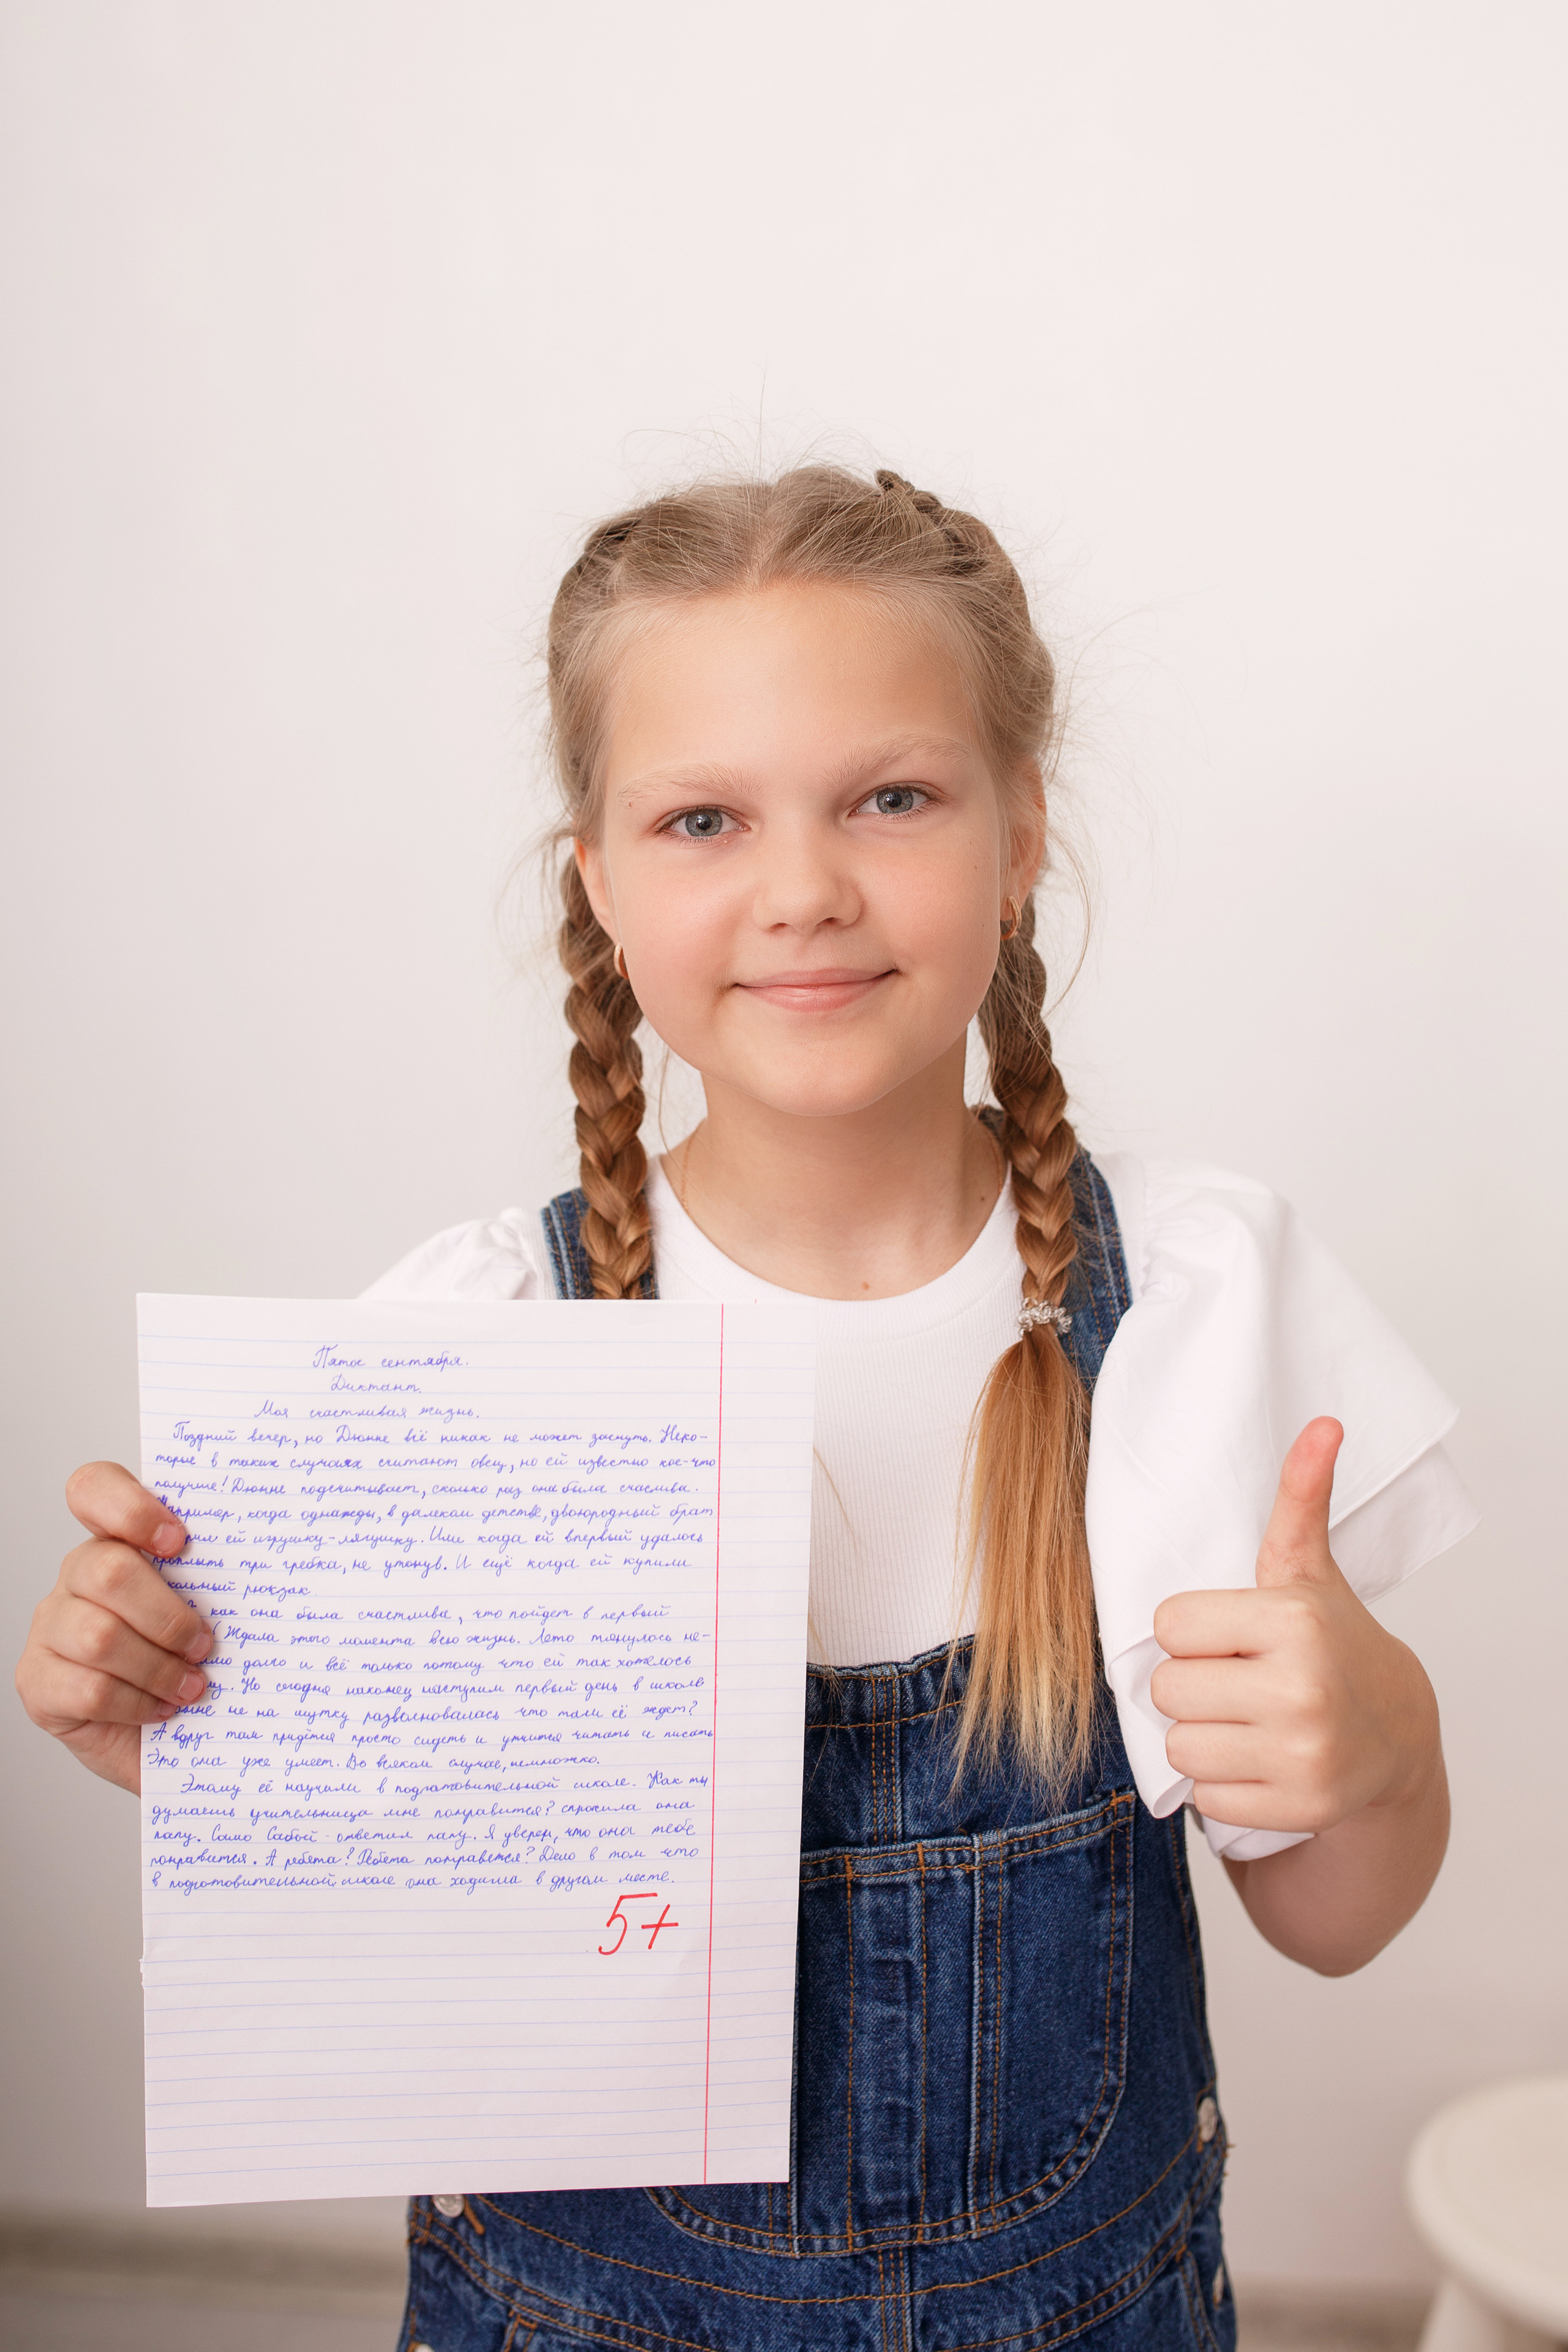 Пятое сентября.
Диктант.
Моя счастливая жизнь.
Поздний вечер, но Дюнне всё никак не может заснуть. Неко-
торые в таких случаях считают овец, но ей известно кое-что
получше! Дюнне подсчитывает, сколько раз она была счаслива.
Например, когда однажды, в далеком детстве, двоюродный брат
ей игрушку-лягушку. Или когда ей впервый удалось
проплыть три гребка, не утонув. И ещё когда ей купили
рюкзак
как она была счастлива, что пойдет в первый
Ждала этого момента всю жизнь. Лето тянулось не-
долго и всё только потому что ей так хотелось
Но сегодня наконец наступил первый день в школе
не на шутку разволновалась что там её ждет?
А вдруг там придётся просто сидеть и учится читать и писать
Это она уже умеет. Во всяком случае, немножко.
Этому её научили в подготовительной школе. Как ты
думаешь учительница мне понравится? спросила она
папу. Само Сабой - ответил папу. Я уверен, что она тебе
понравится. А ребята? Ребята понравятся? Дело в том что
в подготовительной школе она ходила в другом месте.
5+